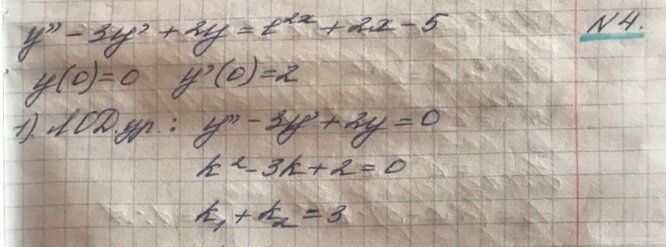 y'' - 3y' + 2y = e^{2x} + 2x - 5
N 4.
y(0) = 0 y'(0) = 2
1). ЛОД ур.: y'' - 3y' + 2y = 0
k² - 3k + 2 = 0
k₁ + k₂ = 3